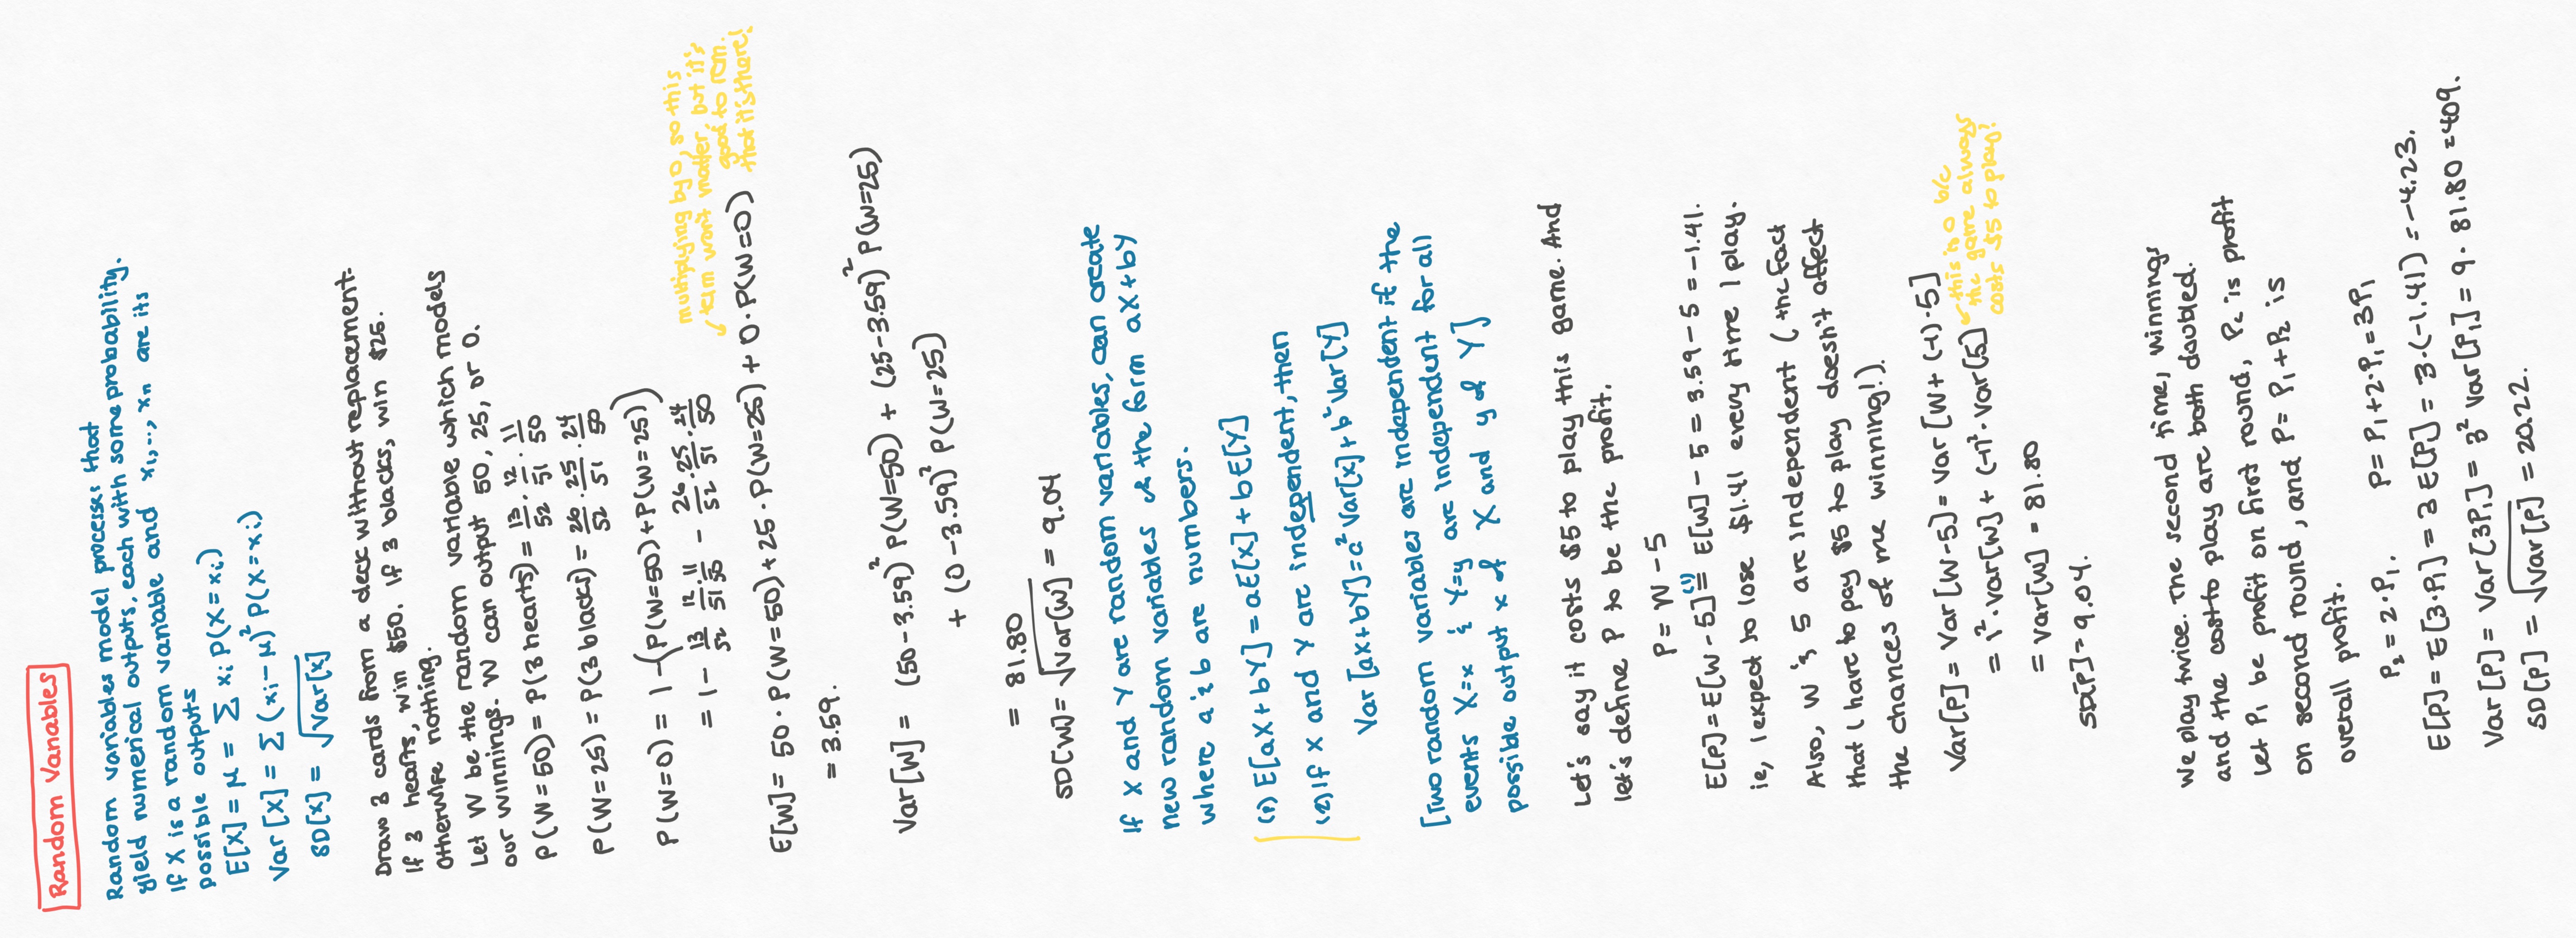 Random Variables
Random variables model processes that
yield numerical outputs, each with some probability.
If X is a random variable and x₁,..., xₙ are its
possible outputs
E[X] = μ = Σ xᵢ P(X = xᵢ)
Var[X] = Σ (xᵢ - μ)² P(X = xᵢ)
SD[X] = √Var[X]
Draw 3 cards from a deck without replacement.
If 3 hearts, win $50. If 3 blacks, win $25.
Otherwise nothing.
Let W be the random variable which models
our winnings. W can output 50, 25, or 0.
P(W=50) = P(3 hearts) = 13/52 · 12/51 · 11/50
P(W=25) = P(3 blacks) = 26/52 · 25/51 · 24/50
P(W=0) = 1 - (P(W=50) + P(W=25))
= 1 - 13/52 12/51 11/50 - 26/52 · 25/51 · 24/50
multiplying by 0, so this
term won't matter, but it's
good to rem.
that it is there!
E[W] = 50 · P(W=50) + 25 · P(W=25) + 0 · P(W=0)
= 3.59.
Var[W] = (50 - 3.59)² P(W=50) + (25 - 3.59)² P(W=25)
+ (0 - 3.59)² P(W=25)
= 81.80
SD[W] = √Var[W] = 9.04
If X and Y are random variables, can create
new random variables of the form aX + bY
where a & b are numbers.
(1) E[aX + bY] = aE[X] + bE[Y]
(2) If X and Y are independent, then
Var[aX + bY] = a² Var[X] + b² Var[Y]
[Two random variables are independent if the
events X=x & Y=y are independent for all
possible output x of X and y of Y]
Let's say it costs $5 to play this game. And
let's define P to be the profit.
P = W - 5
E[P] = E[W - 5] (1)= E[W] - 5 = 3.59 - 5 = -1.41.
ie, I expect to lose $1.41 every time I play.
Also, W & 5 are independent (the fact
that I have to pay $5 to play doesn't affect
the chances of me winning!).
Var[P] = Var[W - 5] = Var[W + (-1) · 5]
= 1² · Var[W] + (-1)² · Var[5]
this is 0 b/c
the game always
costs $5 to play!
= Var[W] = 81.80
SD[P] = 9.04.
We play twice. The second time, winnings
and the cost to play are both doubled.
Let P₁ be profit on first round, P₂ is profit
on second round, and P = P₁ + P₂ is
overall profit.
P₂ = 2 · P₁. P = P₁ + 2 · P₁ = 3P₁
E[P] = E[3 · P₁] = 3 E[P₁] = 3 · (-1.41) = -4.23.
Var[P] = Var[3P₁] = 3² Var[P₁] = 9 · 81.80 = 409.
SD[P] = √Var[P] = 20.22.